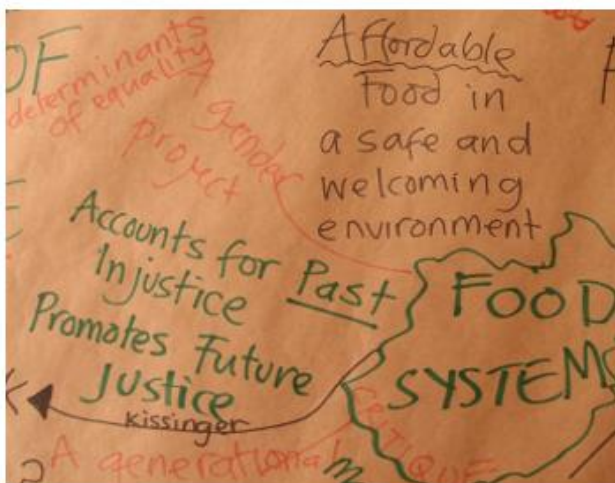 OF
determinants
of equality
gender
project
Affordable
Food in
a safe and
welcoming
environment
Accounts for Past
Injustice
Promotes Future
Justice
Kissinger
FOOD
SYSTEMS
CRITIQUE
A generational